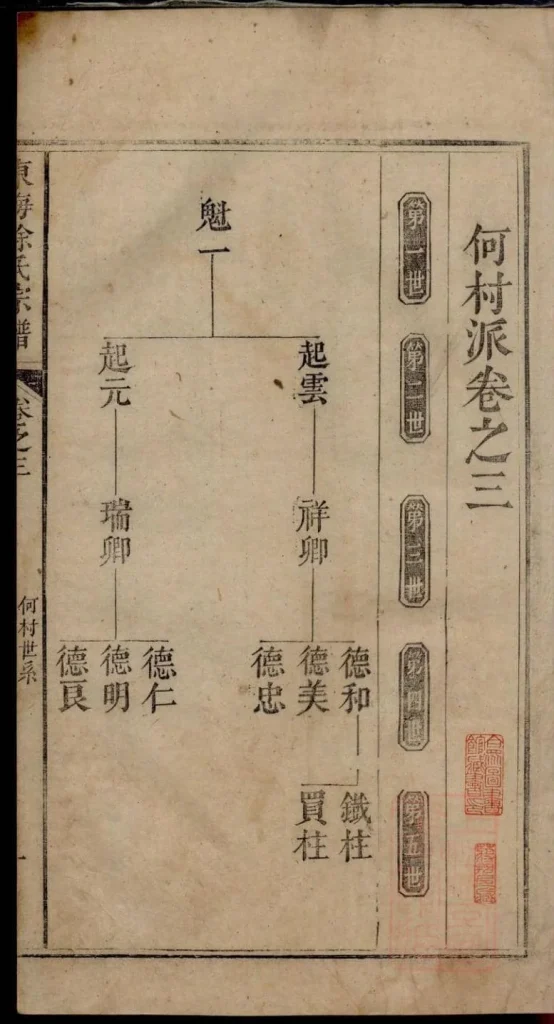 何村派卷之三
第一世
第二世
第三世
第四世
第五世
魁一
起雲
起元
祥卿
瑞卿
德和
德美
德忠
德仁
德明
德艮
鐵柱
買柱
東海徐氏宗譜
卷之三
何村世系
一